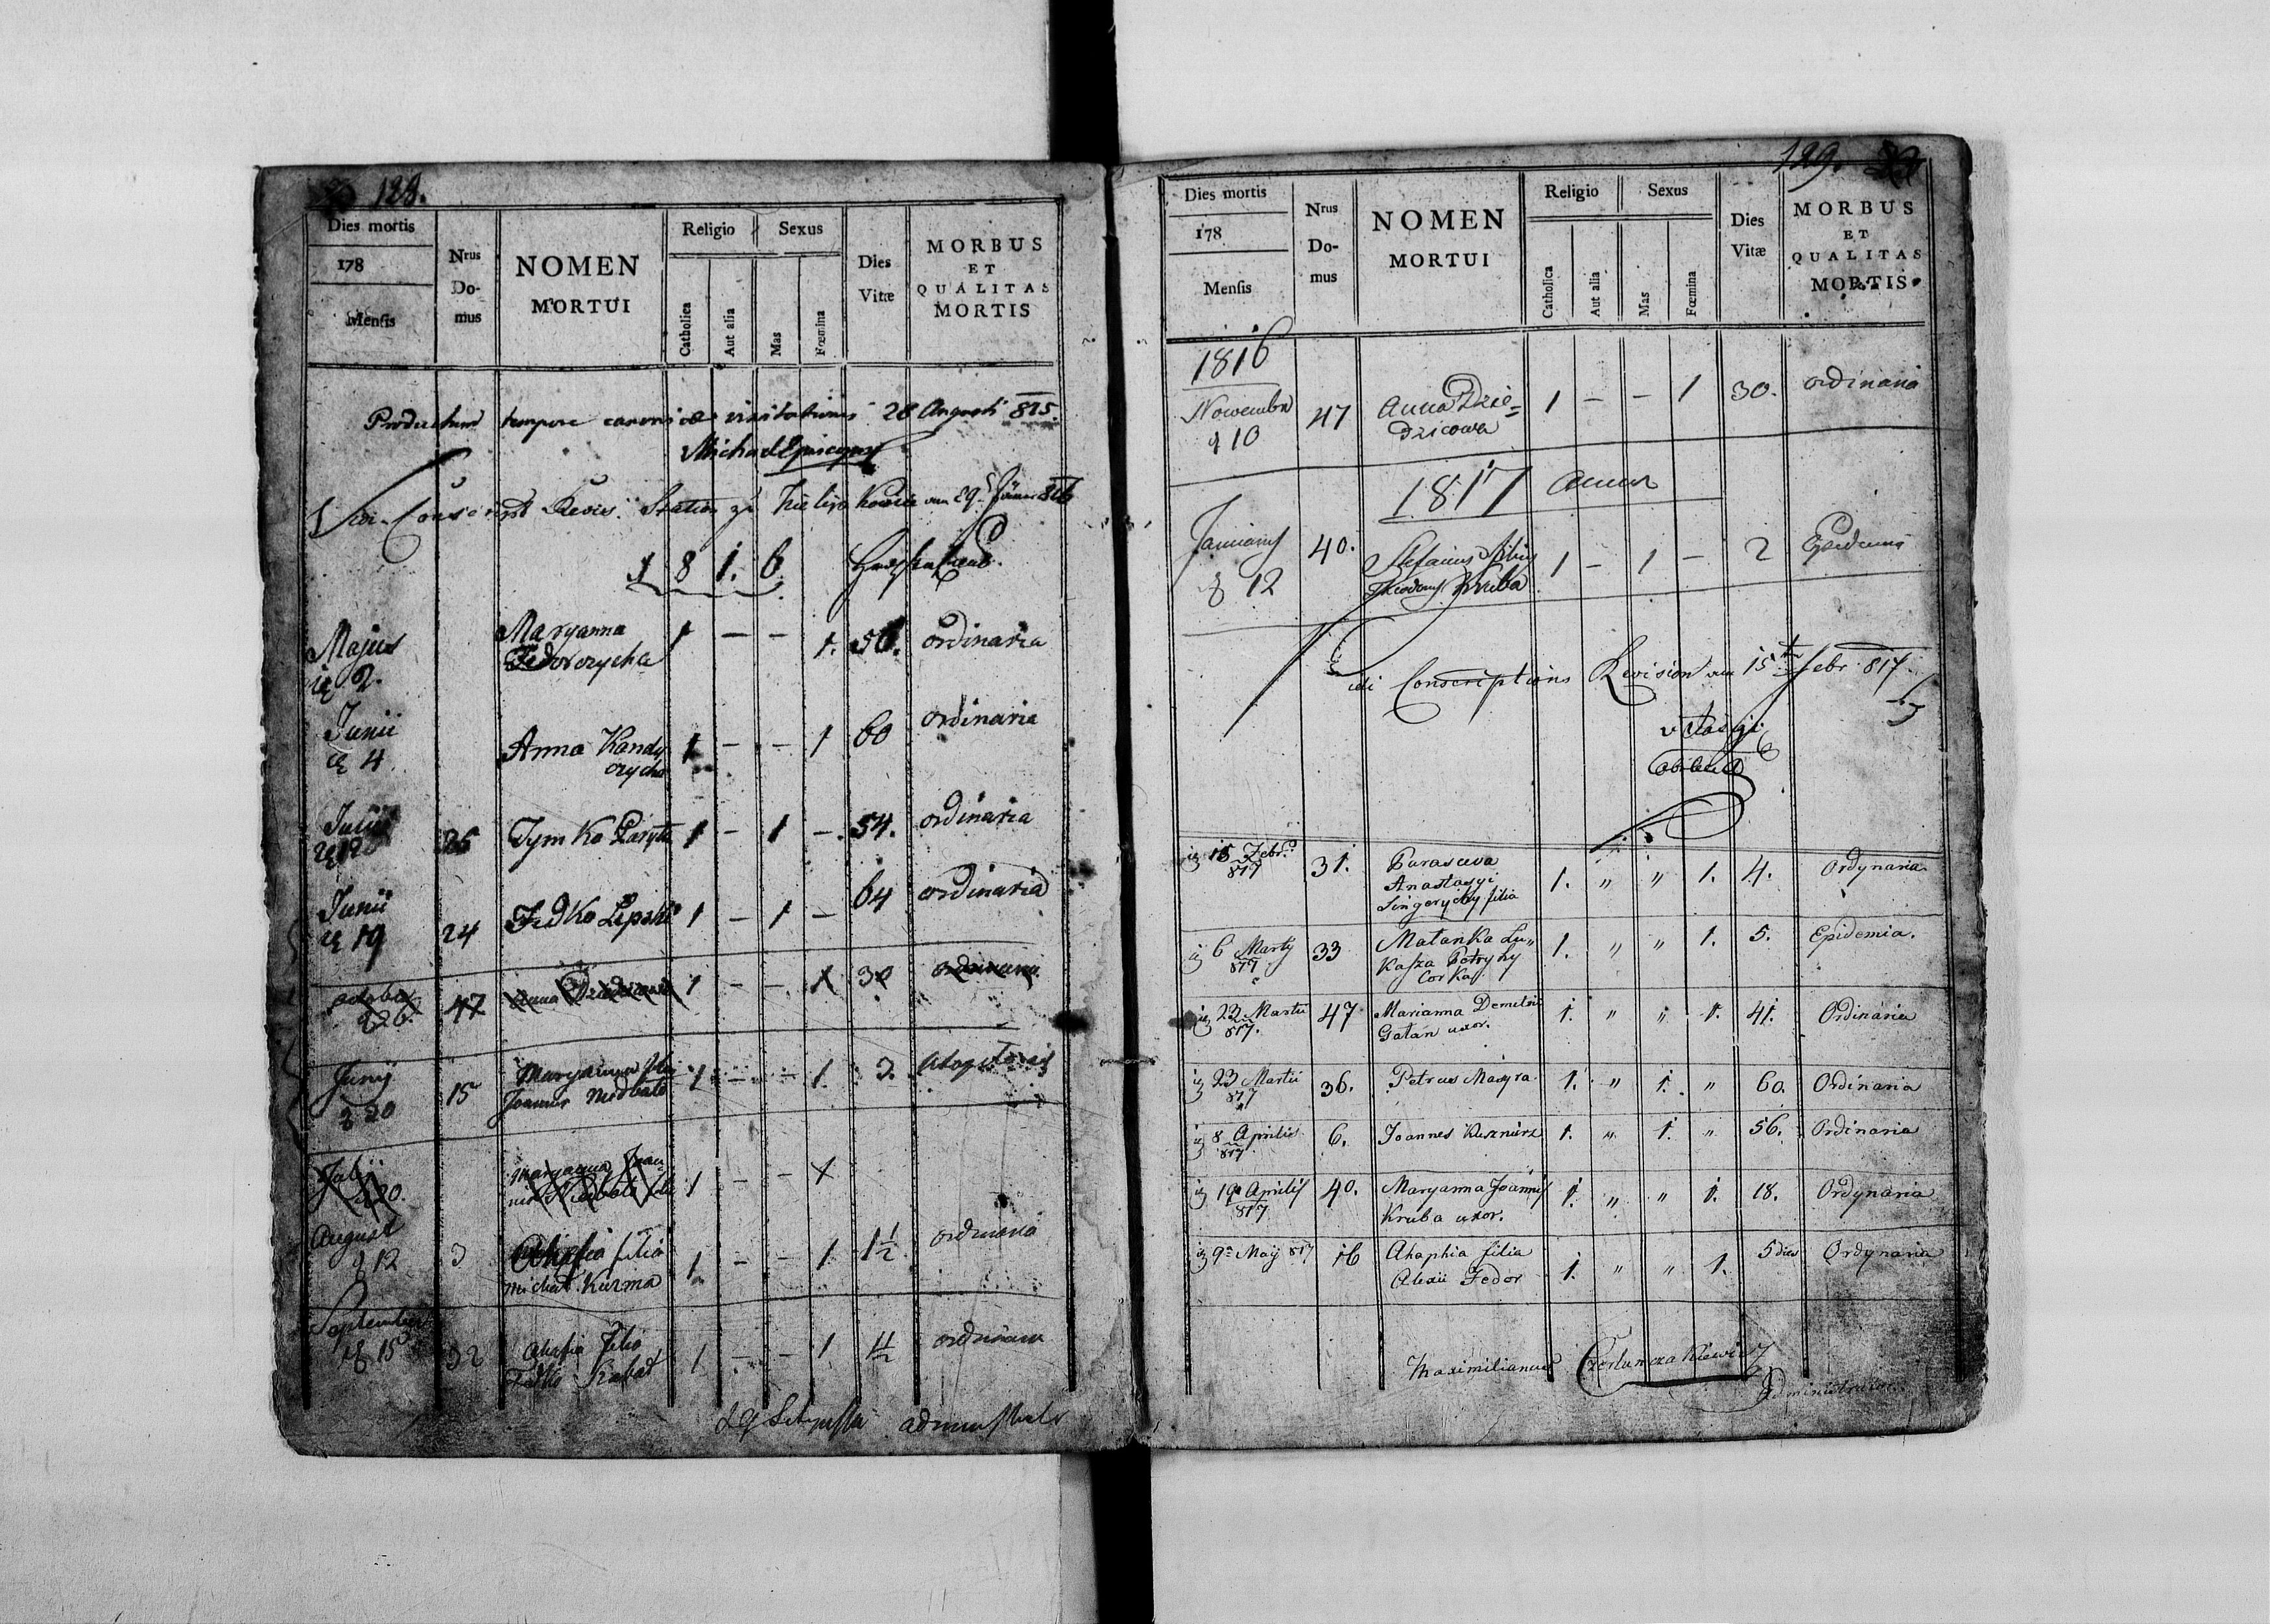 128.
Dies mortis
178
Mensis
Nrus
Do-
mus
NOMEN
MORTUI
Religio
Sexus
Catholica
Aut alia
Mas
Fœmina
Dies
Vitæ
MORBUS
ET
QUALITAS
MORTIS
Productum tempore canonicae visitationis 28 Augusti 815.
Michael Episcopus
Vidi Conscript Revis. Station zu am 29. Jänner 816
1 8 1. 6
Majus Maryanna 1 — — 1. 50. ordinaria
2. Fedorczycha
Junii ordinaria
4 Anna Kandy 1 — — 1 60
czycha
26 Tymko 1 — 1 — 54. ordinaria
Junii 64 ordinaria
19 24 Fedko Lipski 1 — 1 —
october 47 Anna 1 — — 1 30 ordinaria
Junij 15 Maryanna filia 1 — — 1 3.
20 Joannis Niedbało
Julii Maryanna Joan- 1 — — 1
20. nis Niedbało filia
August 3 Ahafia filia 1 — — 1 1½ ordinaria
12 Michał Kuzma
September
15 32 Ahafia filia 1 — — 1 ordinaria
Fedko Kabat
administrator
129.
Dies mortis
178
Mensis
Nrus
Do-
mus
NOMEN
MORTUI
Religio
Sexus
Catholica
Aut alia
Mas
Fœmina
Dies
Vitæ
MORBUS
ET
QUALITAS
MORTIS
1816
Nowembra 47 Anna Dzie- 1 — — 1 30. ordinaria
10 dzicowa
1817 Annus
Januarius 40. Stefanus filius 1 — 1 — 2 Epidemia
12 Kruba
Vidi Conscriptions Revision am 15ten Febr. 817.
15 Febr. 31. Parasceva 1. „ „ 1. 4. Ordynaria
817 Anastazyi
Singerycky filia
6 Marty 33 Matanka Lu„ 1. „ „ 1. 5. Epidemia.
817 kasza Petryny
Corka
22 Martii 47 Marianna Demetri 1. „ „ 1. 41. Ordinaria
817. Gatan uxor.
23 Martii 36. Petrus Mazyra 1. „ 1. „ 60. Ordinaria
817
8 Aprilis 6. Joannes Kusznirz 1. „ 1. „ 56. Ordinaria
817
19 Aprilis 40. Maryanna Joannis 1. „ „ 1. 18. Ordynaria
817 Kruba uxor.
9 Maij 817 16 Ahaphia filia 1. „ „ 1. 5 dies Ordynaria
Alexii Fedor
Maximilianus
Administrator